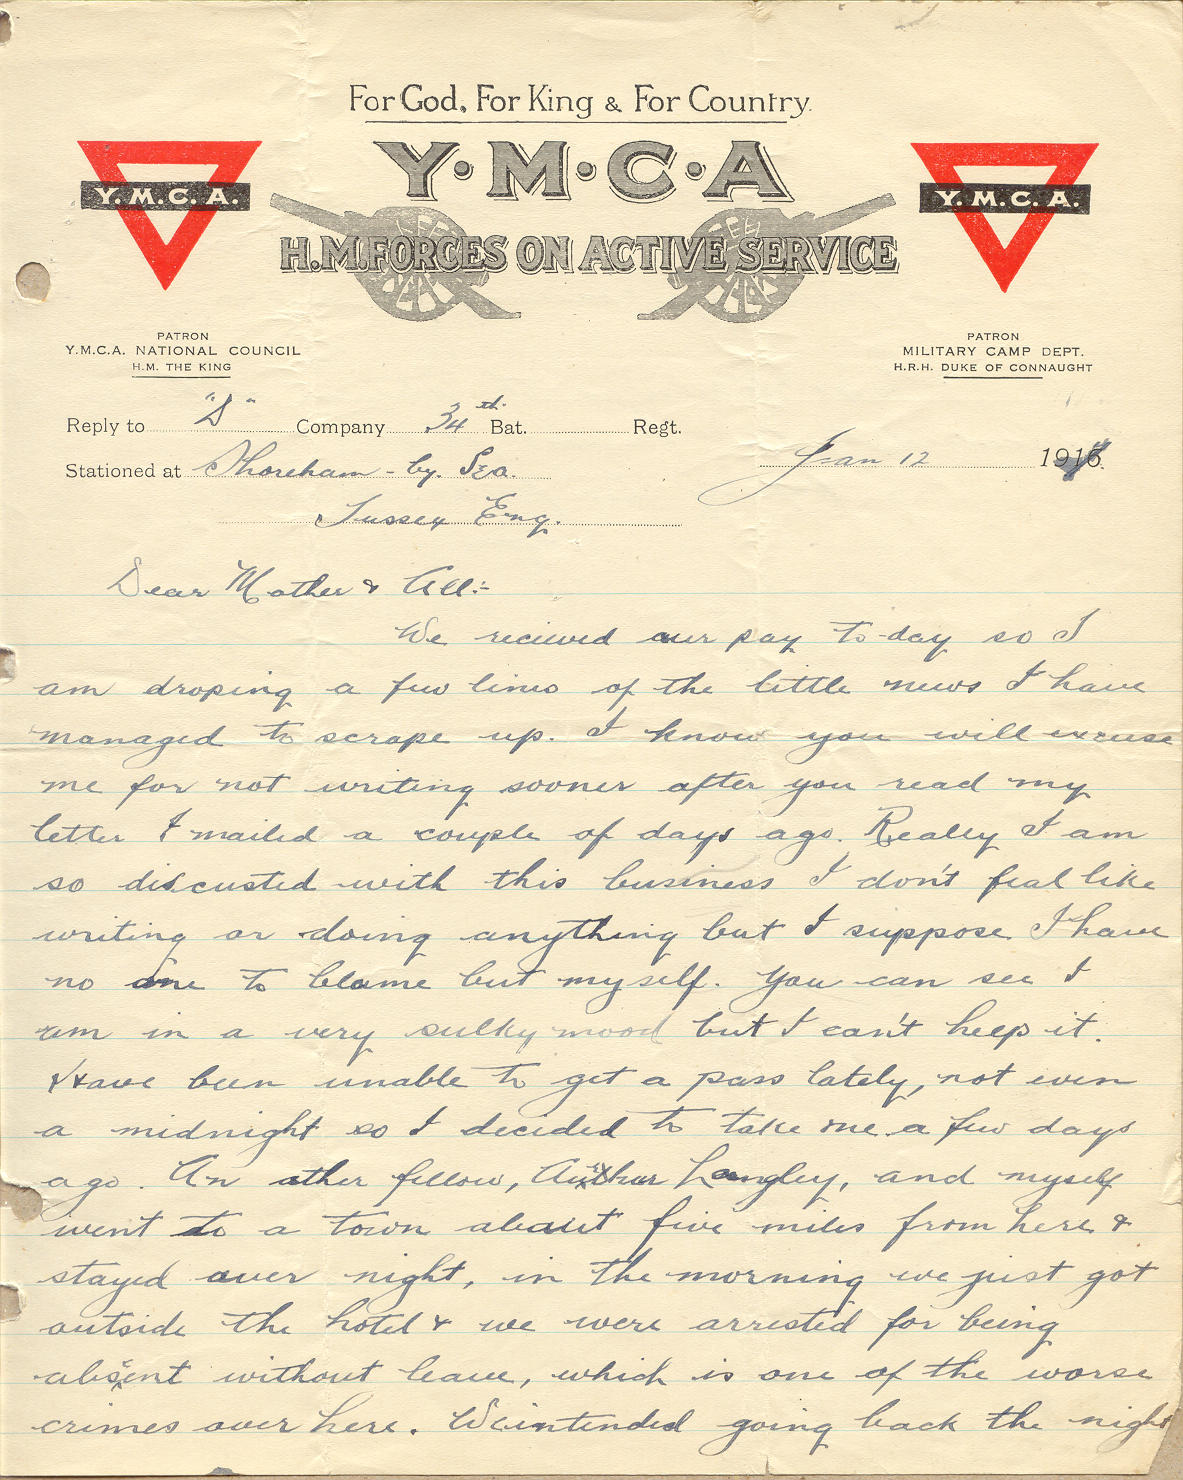 For God, For King & For Country.
Y·M·C·A
Y.M.C.A.
Y.M.C.A.
H.M. FORCES ON ACTIVE SERVICE
PATRON
Y.M.C.A. NATIONAL COUNCIL
H.M. THE KING
PATRON
MILITARY CAMP DEPT.
H.R.H. DUKE OF CONNAUGHT
Reply to "D" Company 34th Bat. Regt.
Stationed at Shoreham-by-Sea.
Jan 12 1917
Sussex Eng.
Dear Mother & All:-
We recieved our pay to-day so I
am droping a few lines of the little news I have
managed to scrape up. I know you will excuse
me for not writing sooner after you read my
letter I mailed a couple of days ago. Really I am
so discusted with this business I don't feal like
writing or doing anything but I suppose I have
no one to blame but myself. You can see I
am in a very sulky mood but I can't help it.
Have been unable to get a pass lately, not even
a midnight so I decided to take one a few days
ago. An other fellow, Arthur Langley, and myself
went to a town about five miles from here &
stayed over night, in the morning we just got
outside the hotel & we were arrested for being
absent without leave, which is one of the worse
crimes over here. We intended going back the night